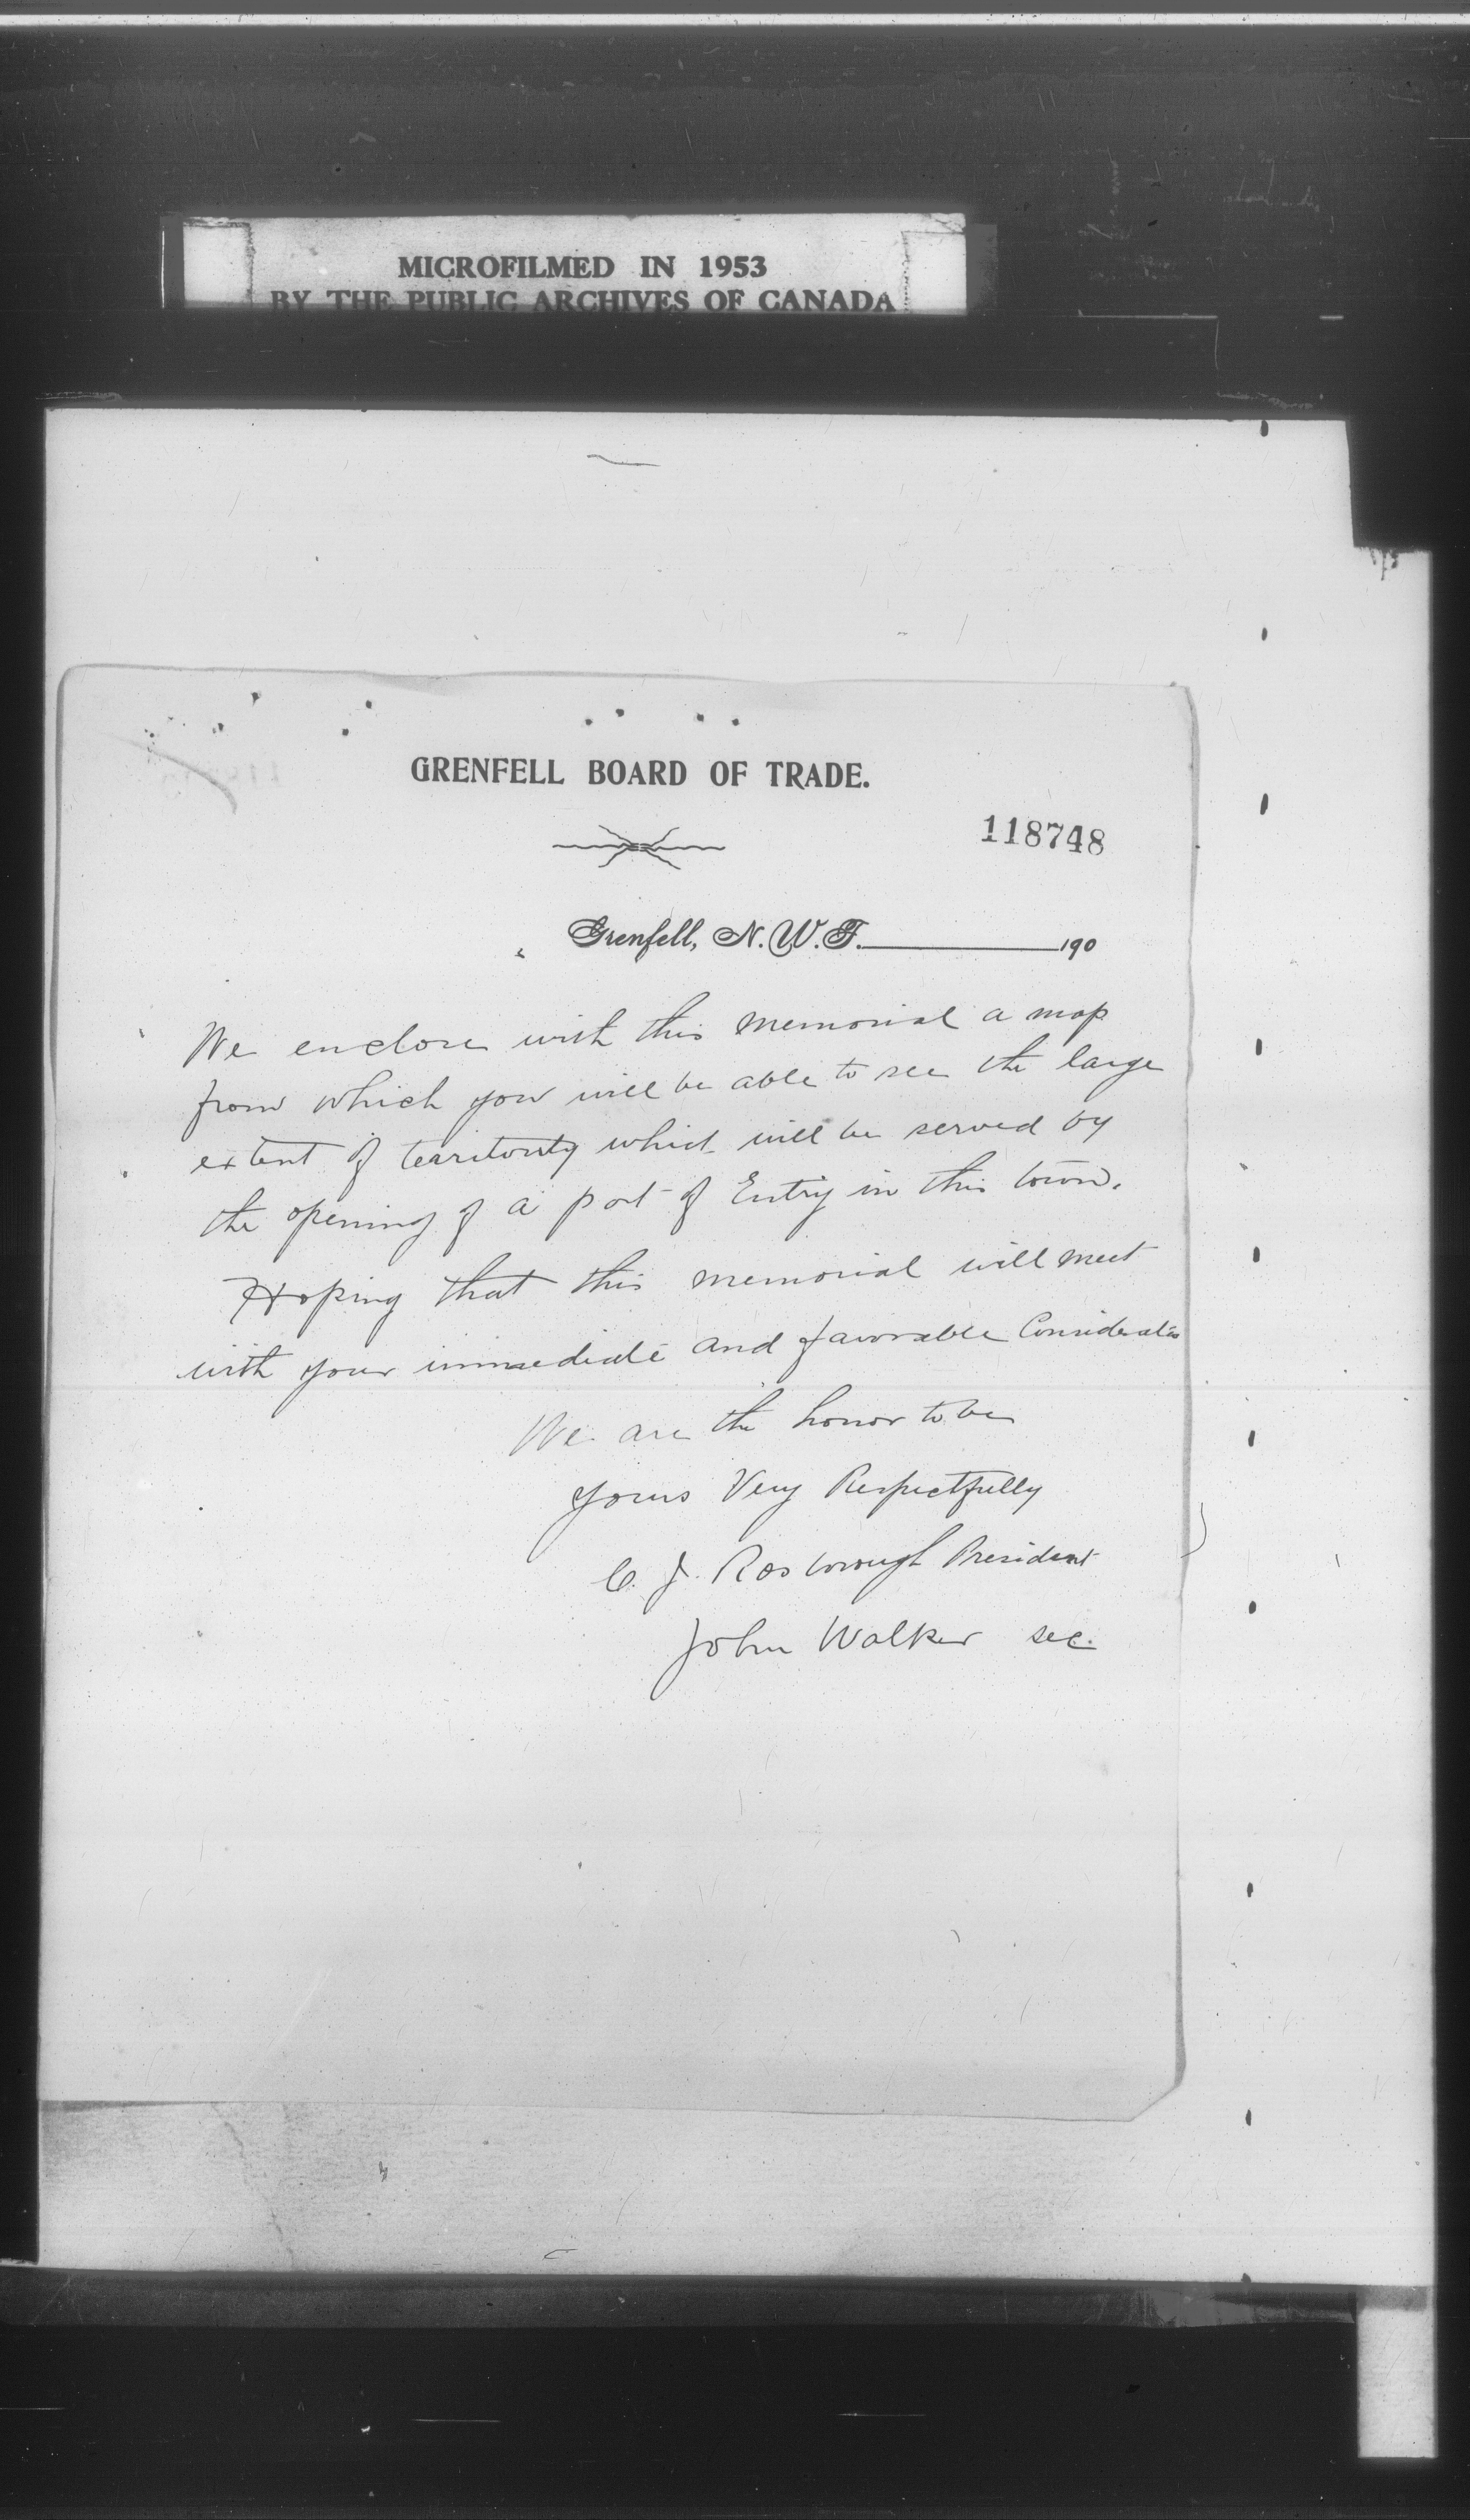 MICROFILMED IN 1953
BY THE PUBLIC ARCHIVES OF CANADA
GRENFELL BOARD OF TRADE.
118748
Grenfell, N. W. T. 190
We enclose with this memorial a map
from which you will be able to see the large
extent of tearitority which will be served by
the opening of a port of Entry in this town.
Hoping that this memorial will meet
with your immediate and favorable Consideration
We are the honor to be
yours Very Respectfully
C. J. Rosborough President
John Walker sec.